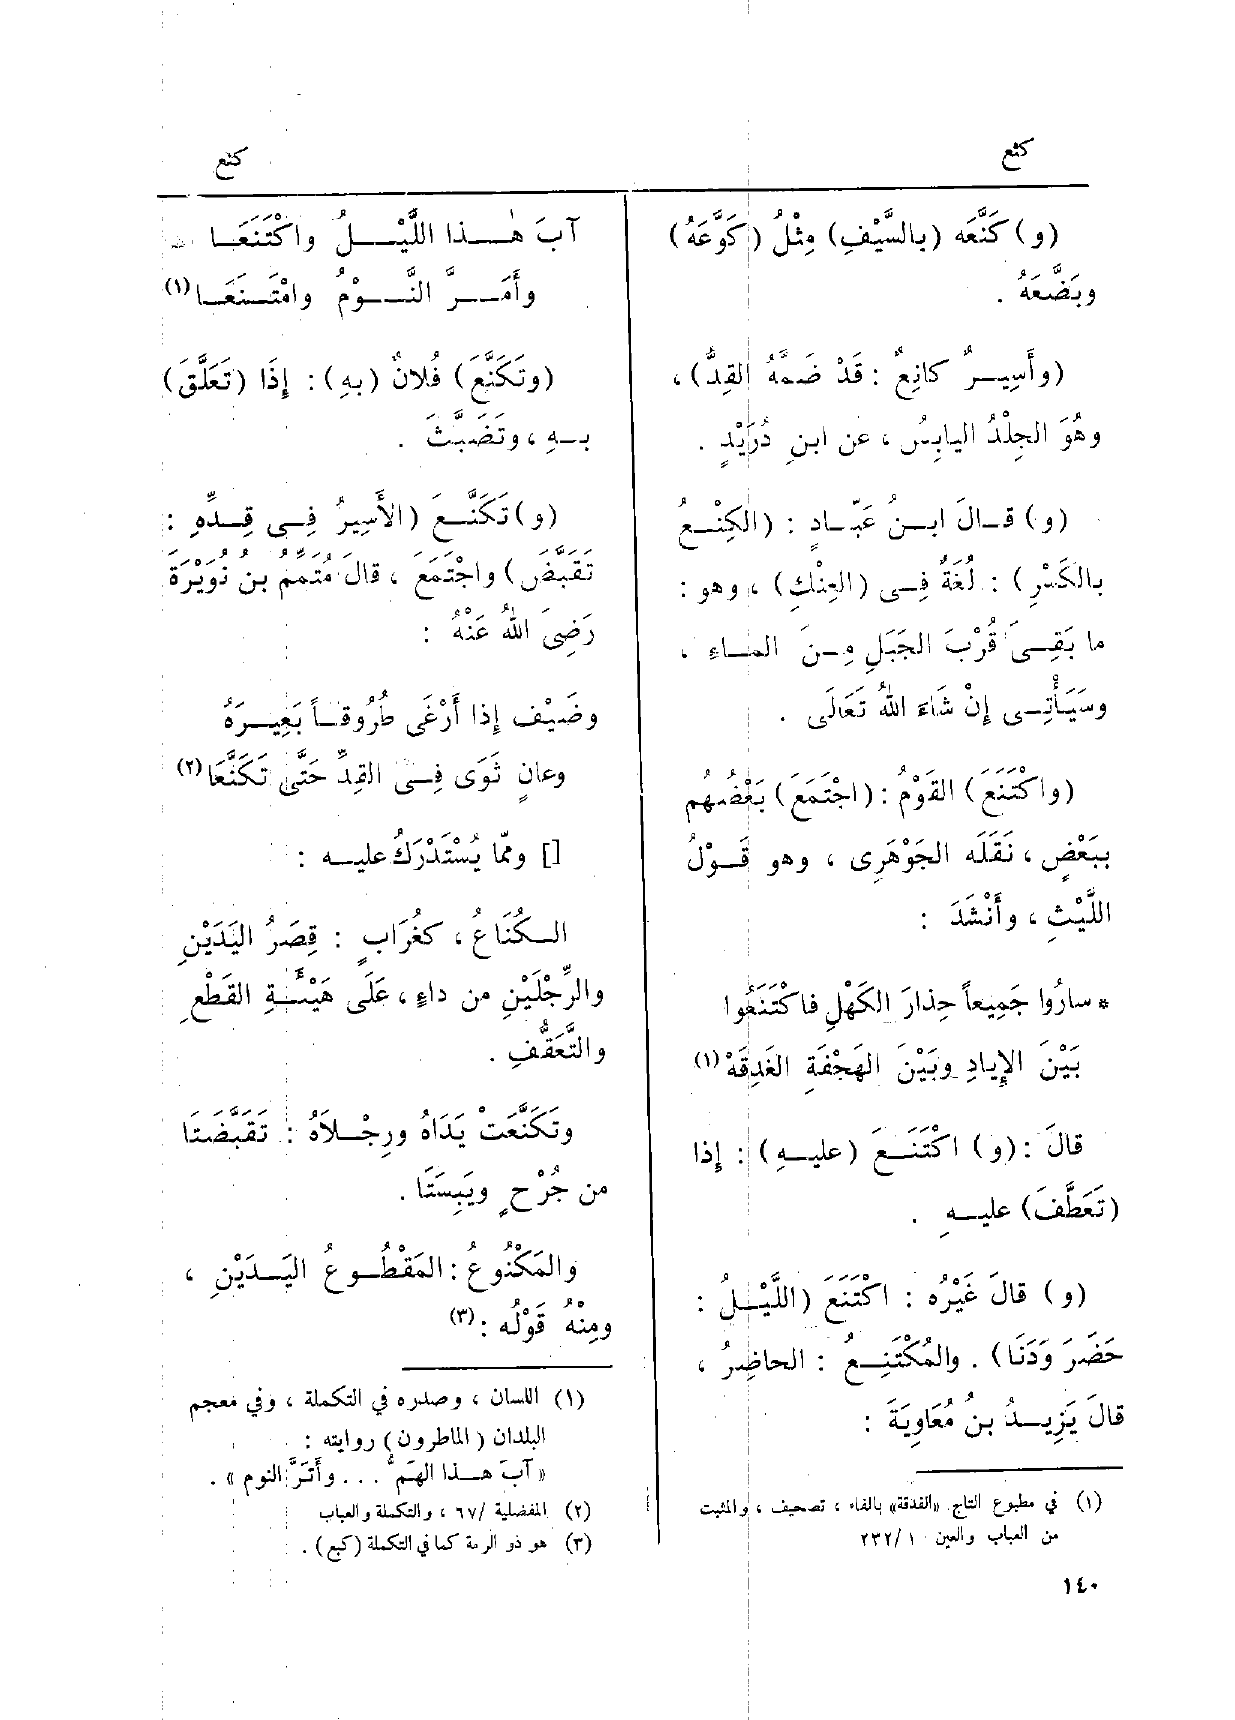 كنع
كنع
(و) كَنَّعَه (بالسَّيْفِ) مِثْلُ (كَوَّعَهُ)
وبَضَّعَهُ .
(وأَسِيرٌ كانِعٌ : قَدْ ضَمَّهُ القِدُّ) ،
وهُوَ الجِلْدُ اليابِسُ ، عن ابنِ دُرَيْدٍ .
(و) قالَ ابنُ عَبّادٍ : (الكِنْعُ
بالكَسْرِ) : لُغَةٌ فِى (العِنْكِ) ، وهو :
ما بَقِىَ قُرْبَ الجَبَلِ مِنَ الماءِ ،
وسَيَأْتِى إِنْ شَاءَ اللهُ تَعَالَى .
(واكْتَنَعَ) القَوْمُ : (اجْتَمَعَ) بَعْضُهم
بِبَعْضٍ ، نَقَلَه الجَوْهَرِى ، وهو قَوْلُ
اللَّيْثِ ، وأَنْشَدَ :
* سارُوا جَمِيعاً حِذارَ الكَهْلِ فاكْتَنَعُوا
بَيْنَ الإِيادِ وبَيْنَ الهَجْفَةِ الغَدِقَهْ (١)
قالَ : (و) اكْتَنَعَ (عليهِ) : إِذا
(تَعَطَّفَ) عليهِ .
(و) قالَ غَيْرُه : اكْتَنَعَ (اللَّيْلُ :
حَضَرَ وَدَنَا) . والمُكْتَنِعُ : الحاضِرُ ،
قالَ يَزِيدُ بنُ مُعَاوِيَةَ :
(١) في مطبوع التاج «الفدقة» بالفاء ، تصحيف ، والمثبت
من العباب والعين ١ /٢٣٢
آبَ هٰذا اللَّيْلُ واكْتَنَعَا
وأَمَرَّ النَّوْمُ وامْتَنَعَا (١)
(وتَكَنَّعَ) فُلانٌ (بهِ) : إِذَا (تَعَلَّقَ)
بهِ ، وتَضَبَّثَ .
(و) تَكَنَّعَ (الأَسِيرُ فِى قِدِّهِ :
تَقَبَّضَ) واجْتَمَعَ ، قالَ مُتَمِّمُ بن نُوَيْرَةَ
رَضِىَ اللهُ عَنْهُ :
وضَيْفٍ إِذا أَرْغَى طُرُوقاً بَعِيرَهُ
وعانٍ ثَوَى فِى القِدِّ حَتَّى تَكَنَّعَا (٢)
[] وممّا يُسْتَدْرَكُ عليه :
الكُنَاعُ ، كغُرَابٍ : قِصَرُ اليَدَيْنِ
والرِّجْلَيْنِ من داءٍ ، عَلَى هَيْئَةِ القَطْعِ
والتَّعَقُّفِ .
وتَكَنَّعَتْ يَدَاهُ ورِجْلاَهُ : تَقَبَّضَتَا
من جُرْحٍ ويَبِسَتَا .
والمَكْنُوعُ : المَقْطُوعُ اليَدَيْنِ ،
ومِنْهُ قَوْلُه : (٣)
(١) اللسان ، وصدره في التكملة ، وفي معجم
البلدان (الماطرون) روايته :
« آبَ هذا الهَمُّ . . . وأَتَرَّ النوم » .
(٢) المفضلية /٦٧ ، والتكملة والعباب
(٣) هو ذو الرمة كما في التكملة (كبع) .
١٤٠